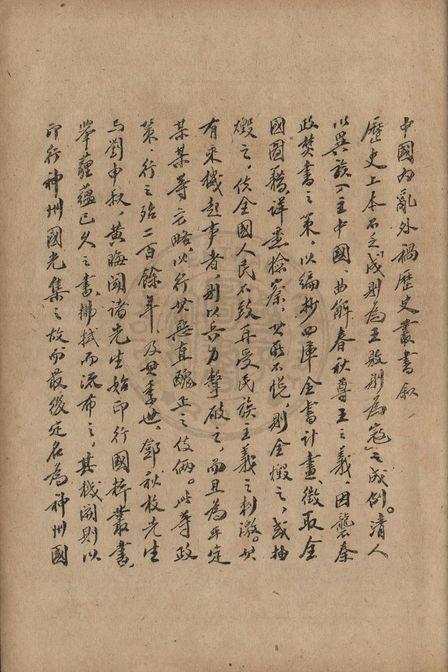 中國內亂外禍歷史叢書叙
歷史上本不乏「成則為王敗則為寇」之成例。清人
以異族入主中國、曲解春秋尊王之義、因襲秦
政焚書之策、以編抄四庫全書計畫、徵取全
國圖籍詳查檢察、其所不悅、則全燬之、或抽
燬之、俟全國人民不致再受民族主義之刺激。其
有乘機起事者、則以兵力擊破之、而且為平定
某某等方略、以行其惡直醜正之伎倆。此等政
策、行之殆二百餘年、及母季世、鄧秋枚先生
與劉申叔、黃晦聞諸先生始印行國粹叢書、
舉蘊蘊已久之書、拂拭而流布之、其機關則以
印行神州國光集之故、而最後定名為神州國